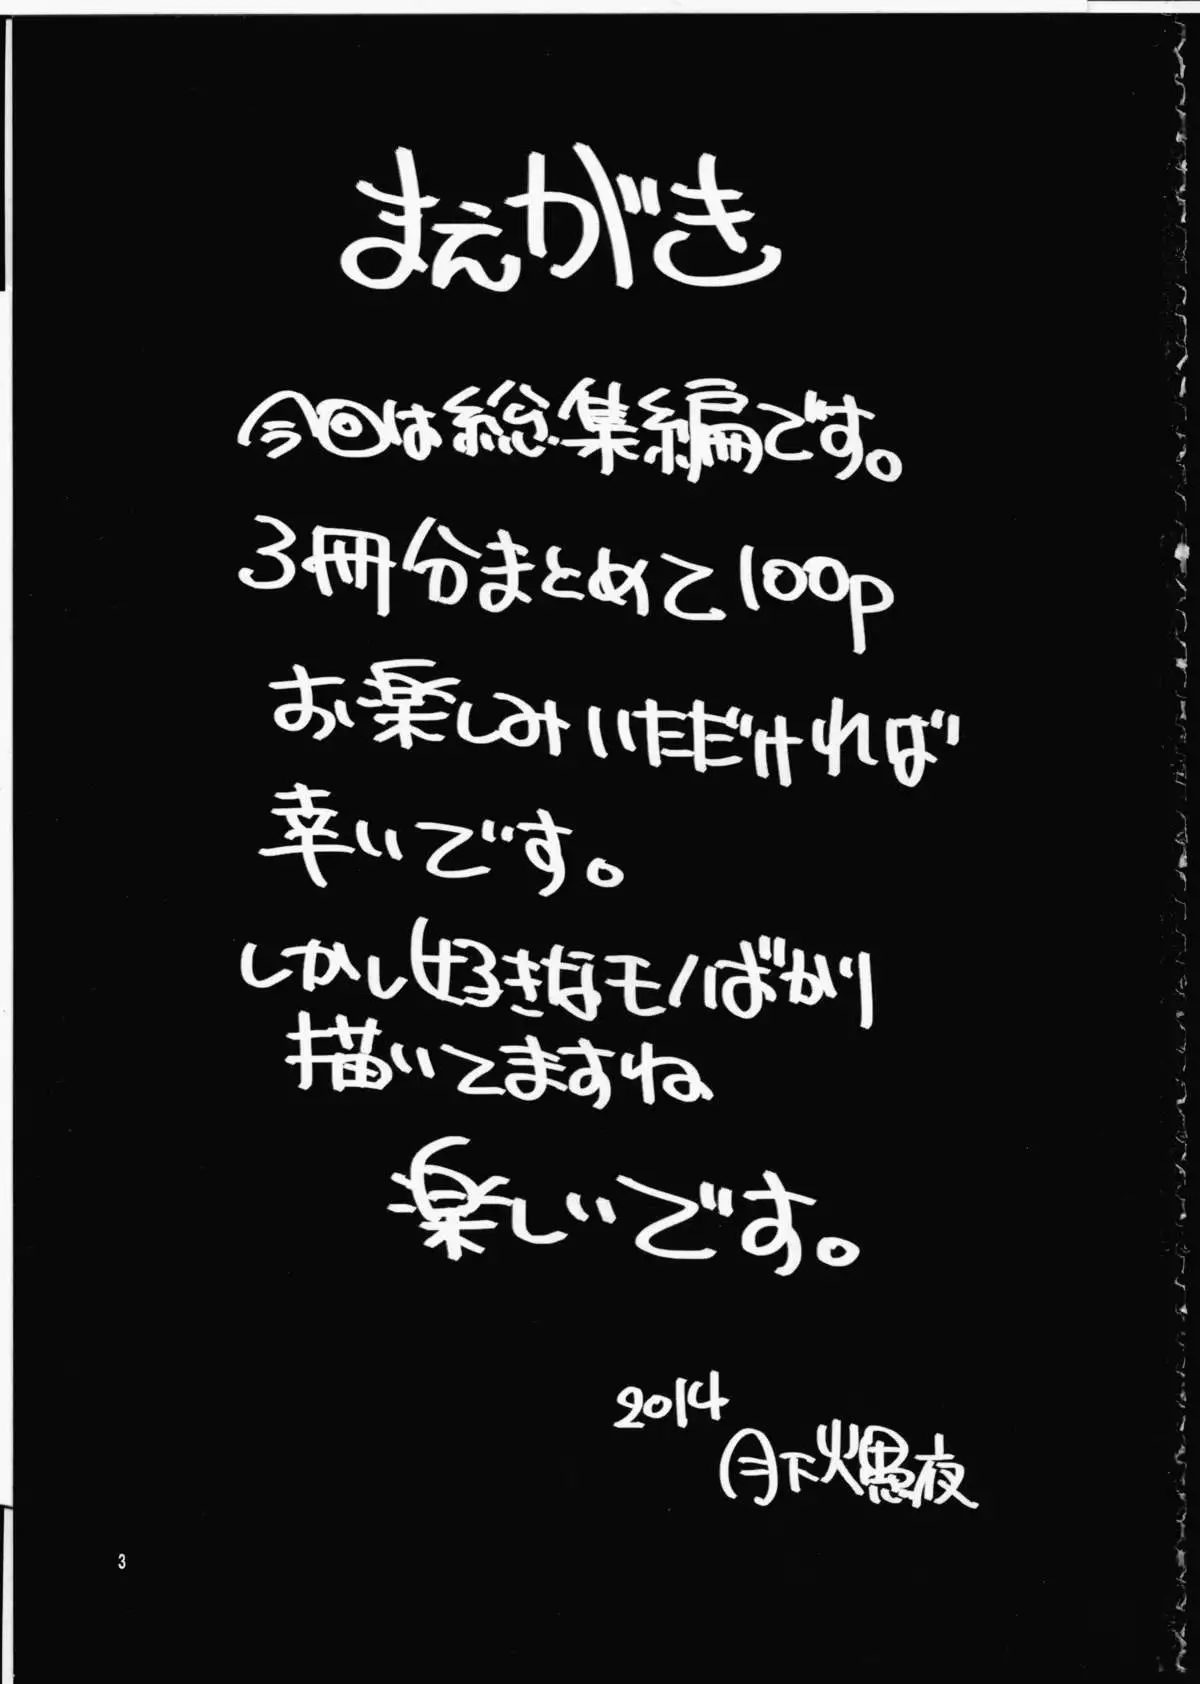 まえがき
今回は総集編です。
3冊分まとめて100p
お楽しみいただければ
幸いです。
しかし好きなモノばかり
描いてますね
楽しいです。
2014
月下火煙夜
3